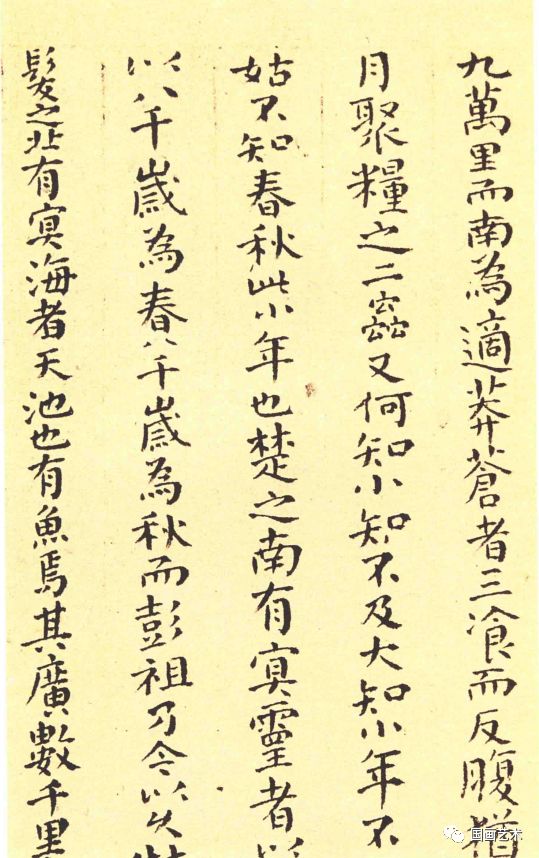 九萬里而南為適莽蒼者三飡而反腹猶
月聚糧之二蟲又何知小知不及大知小年不
姑不知春秋此小年也楚之南有冥靈者以
以八千歲為春八千歲為秋而彭祖乃今以久特
髮之北有冥海者天池也有魚焉其廣數千里
国画艺术